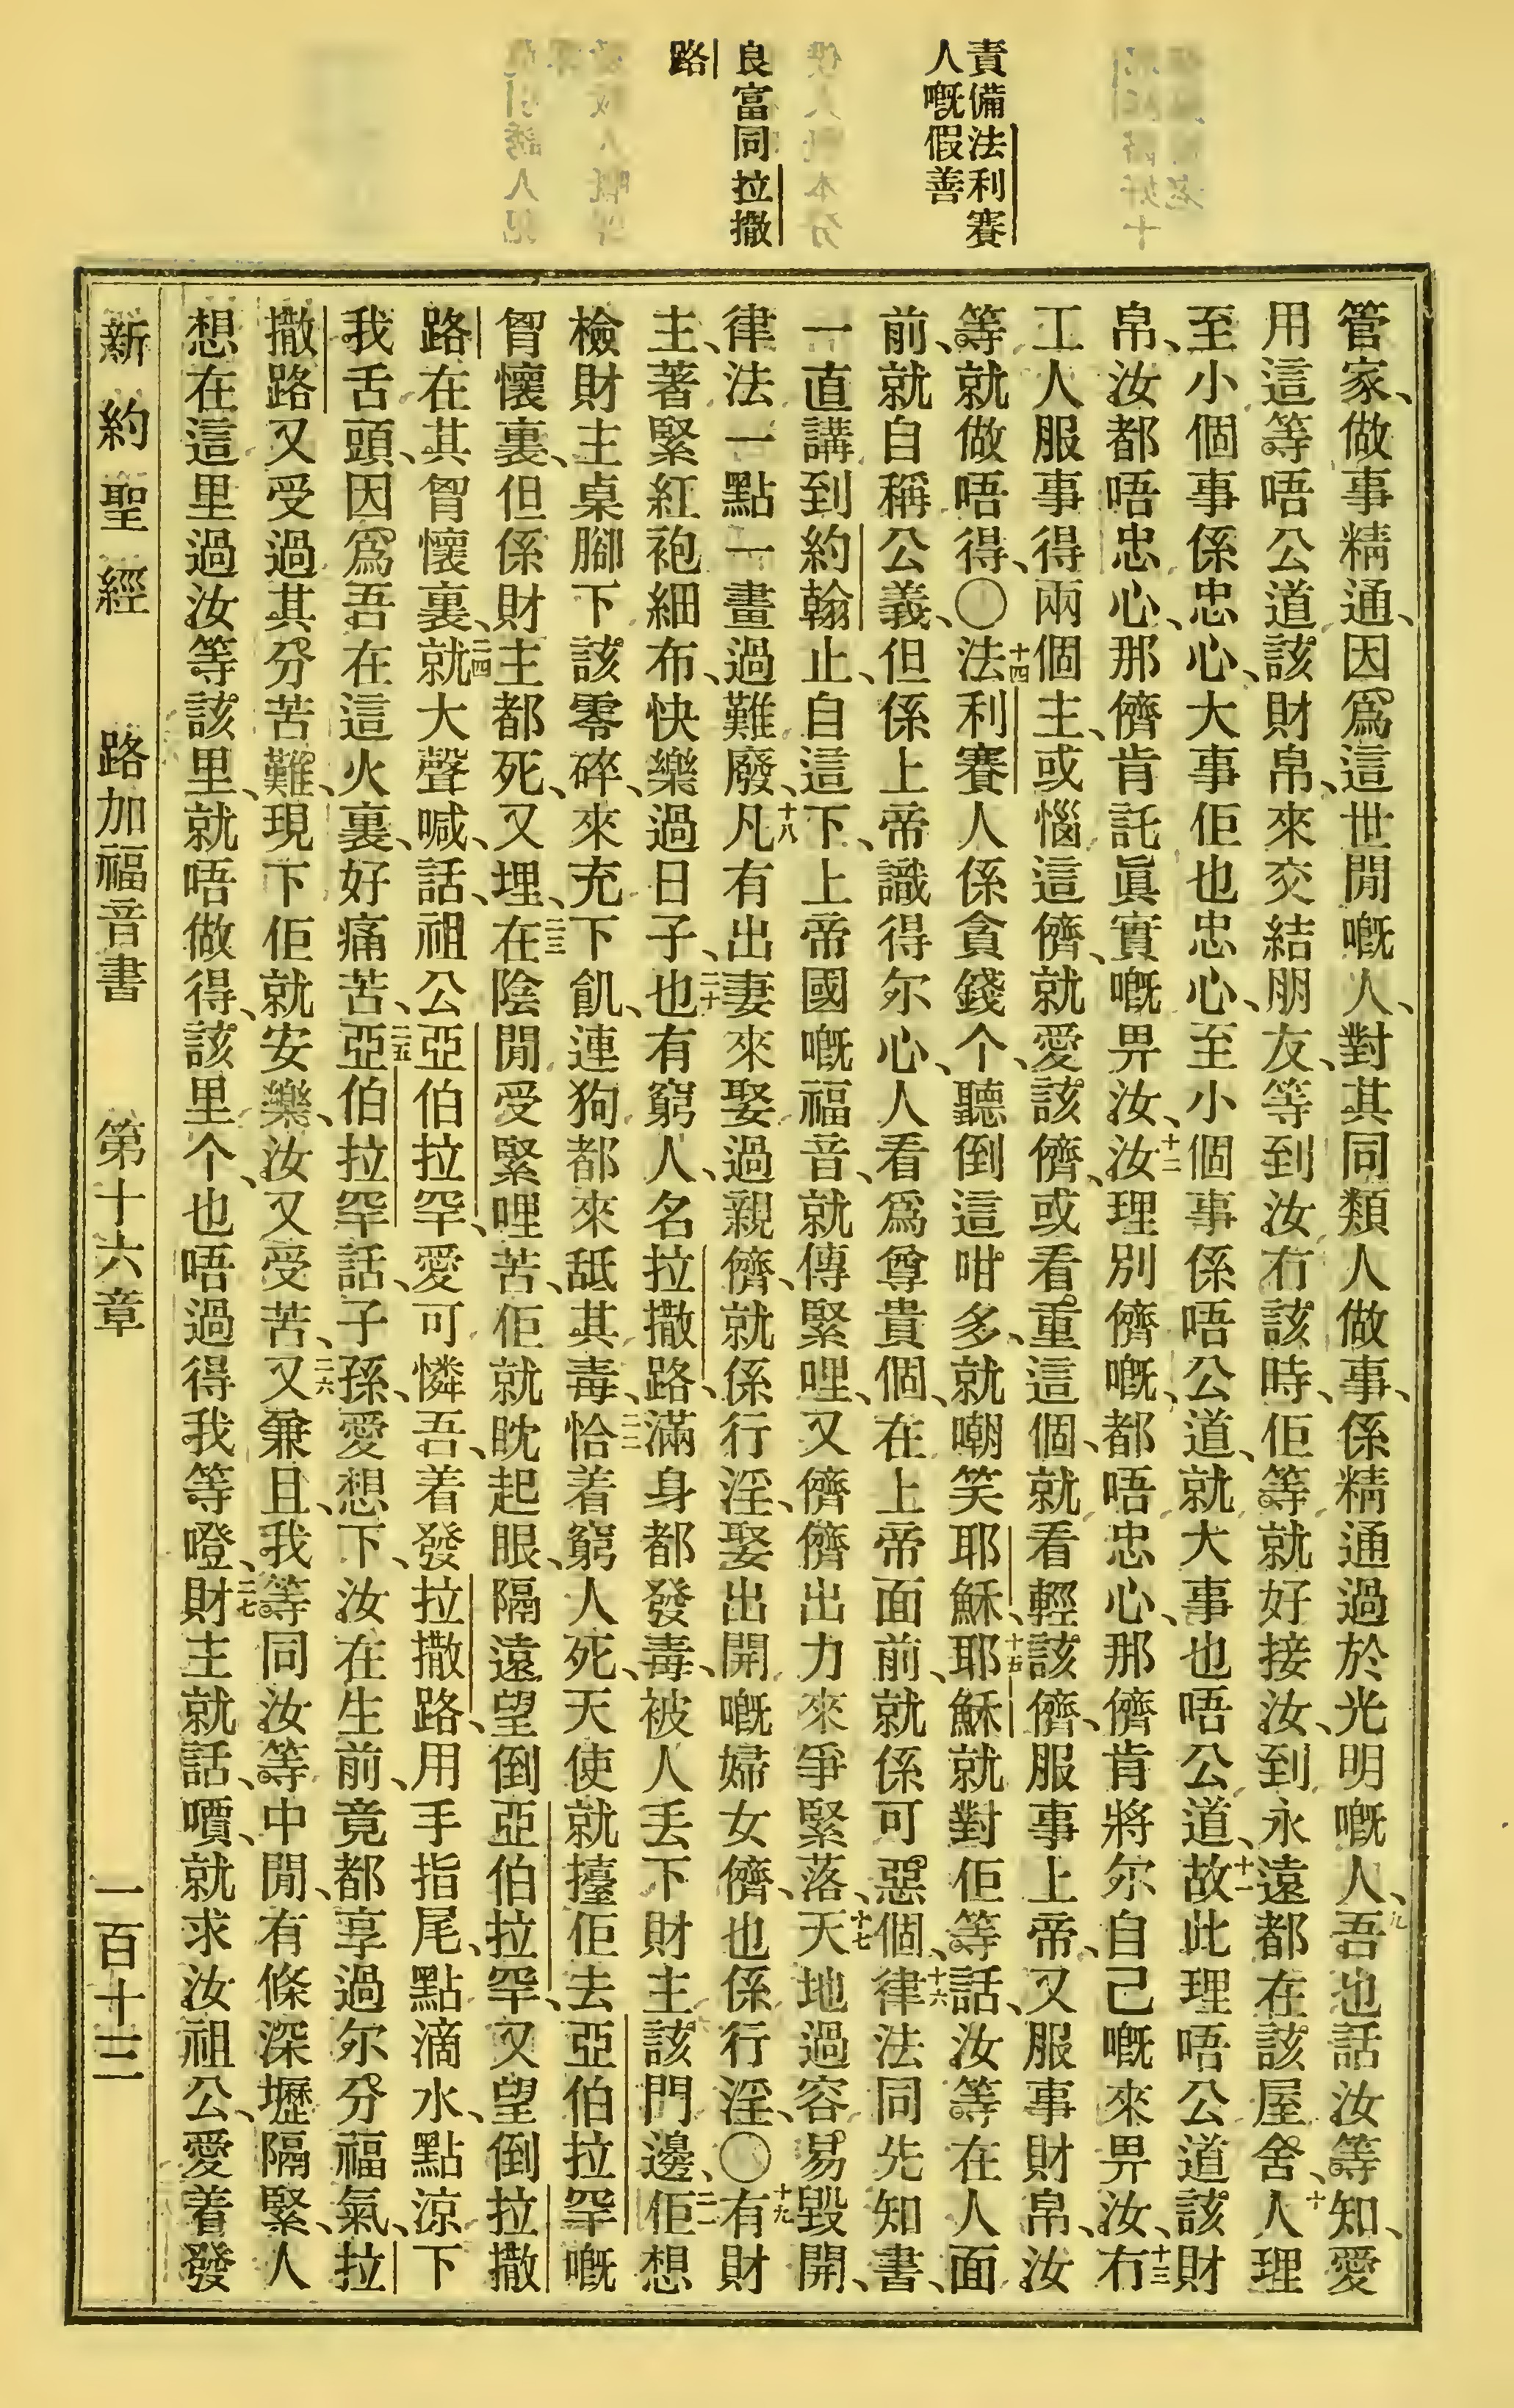 責備法利賽
人嘅假善
良富同拉撒
路
管家、做事精通、因爲這世間嘅人、對其同類人做事、係精通過於光明嘅人、九吾也話汝等知、愛
用這等唔公道該財帛、來交結朋友、等到汝冇該時、佢等就好接汝、到永遠都在該屋舍、十人理
至小個事係忠心、大事佢也忠心、至小個事係唔公道、就大事也唔公道、十一故此理唔公道該財
帛、汝都唔忠心、那儕肯託眞實嘅畀汝、十二汝理別儕嘅、都唔忠心、那儕肯將尔自己嘅來畀汝、十三冇
工人服事得兩個主、或惱這儕、就愛該儕、或看重這個、就看輕該儕、服事上帝、又服事財帛、汝
等就做唔得、〇十四法利賽人係貪錢个、聽倒這咁多、就嘲笑耶穌、十五耶穌就對佢等話、汝等在人面
前、就自稱公義、但係上帝識得尔心、人看爲尊貴個、在上帝面前、就係可惡個、十六律法同先知書、
一直講到約翰止、自這下、上帝國嘅福音、就傳緊哩、又儕儕出力來爭緊落、十七天地過容易毀開、
律法一點一畫過難廢、十八凡有出妻來娶過親儕、就係行淫、娶出開嘅婦女儕、也係行淫、〇十九有財
主、著緊紅袍細布、快樂過日子、二十也有窮人、名拉撒路、滿身都發毒、被人丟下財主該門邊、二一佢想
檢財主桌腳下該零碎、來充下飢、連狗都來舐其毒、二二恰着窮人死、天使就擡佢去亞伯拉罕嘅
胷懷裏、但係財主都死、又埋、二三在陰間受緊哩苦、佢就眈起眼、隔遠望倒亞伯拉罕、又望倒拉撒
路在其胷懷裏、二四就大聲喊、話、祖公亞伯拉罕、愛可憐吾、着發拉撒路、用手指尾、點滴水、點涼下
我舌頭、因爲吾在這火裏、好痛苦、二五亞伯拉罕話、子孫、愛想下、汝在生前、竟都享過尔分福氣、拉
撒路又受過其分苦難、現下佢就安樂、汝又受苦、二六又兼且、我等同汝等中間、有條深壢隔緊、人
想在這里過汝等該里、就唔做得、該里个、也唔過得我等嶝、二七財主就話、嘳、就求汝祖公、愛着發
新約聖經 路加福音書 第十六章 一百十三